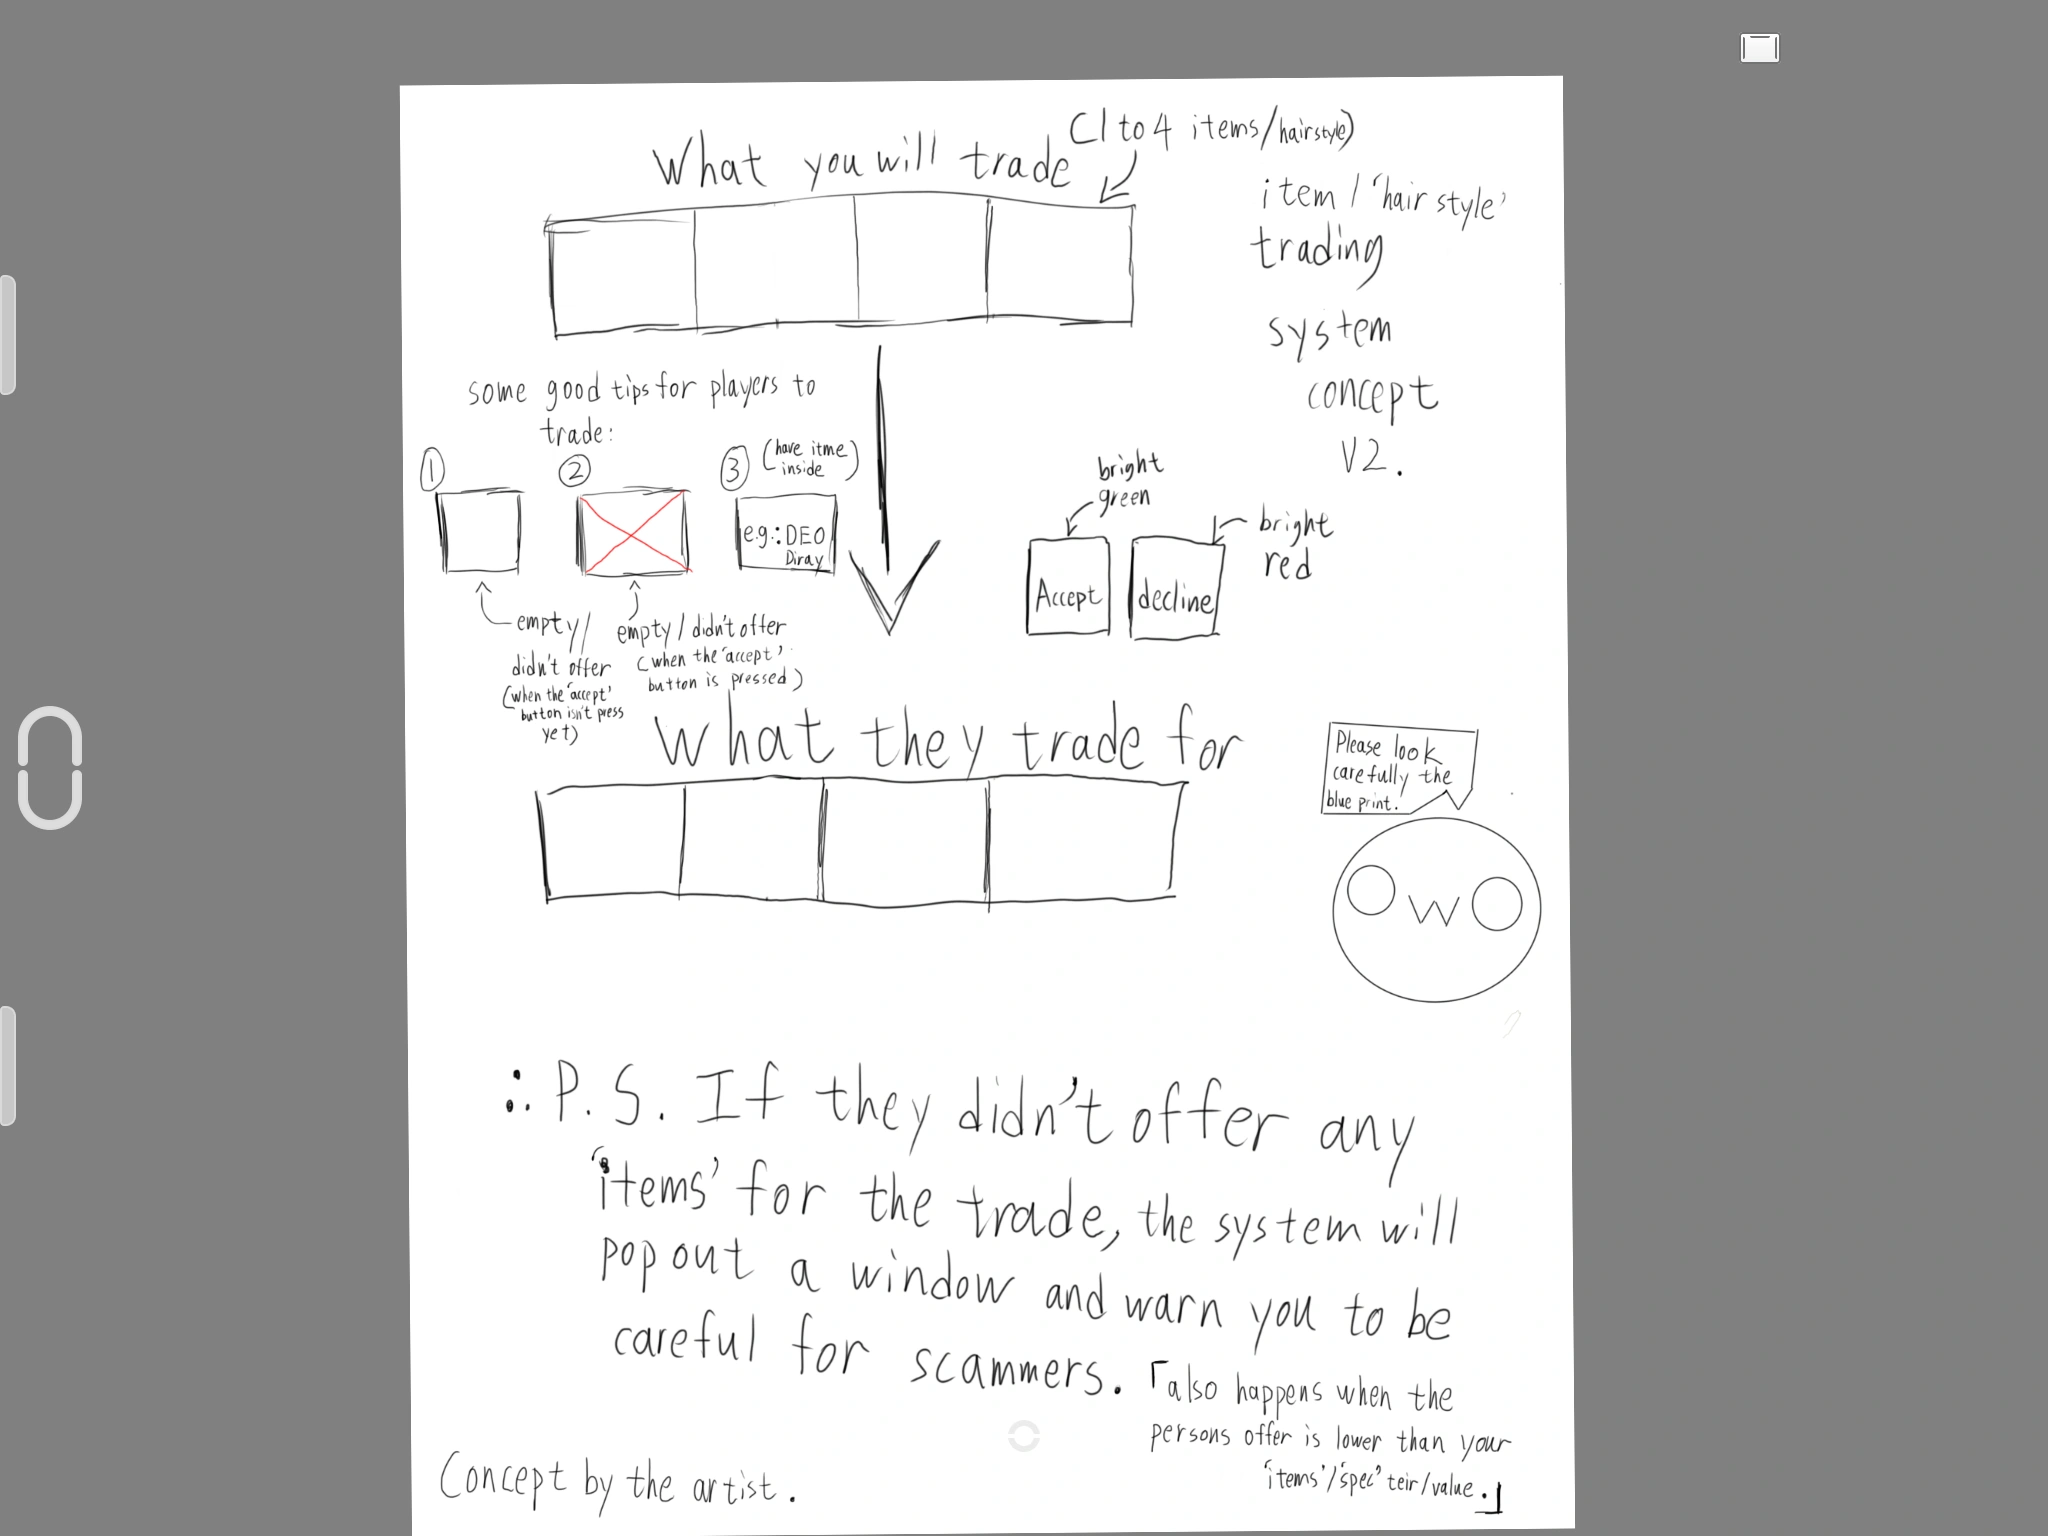 What you will trade
(1 to 4 items/hairstyle)
item / 'hair style'
trading
system
concept
V2.
some good tips for players to
trade:
①
②
③
(have itme
inside)
e.g.: DEO
Diray
empty/
didn't offer
(when the 'accept'
button isn't press
yet)
empty / didn't offer
(when the 'accept'
button is pressed)
bright
green
bright
red
Accept
decline
What they trade for
Please look
carefully the
blue print.
OWO
∴ P.S. If they didn't offer any
'items' for the trade, the system will
pop out a window and warn you to be
careful for scammers.
「also happens when the
persons offer is lower than your
'items'/'spec' teir/value.」
Concept by the artist.